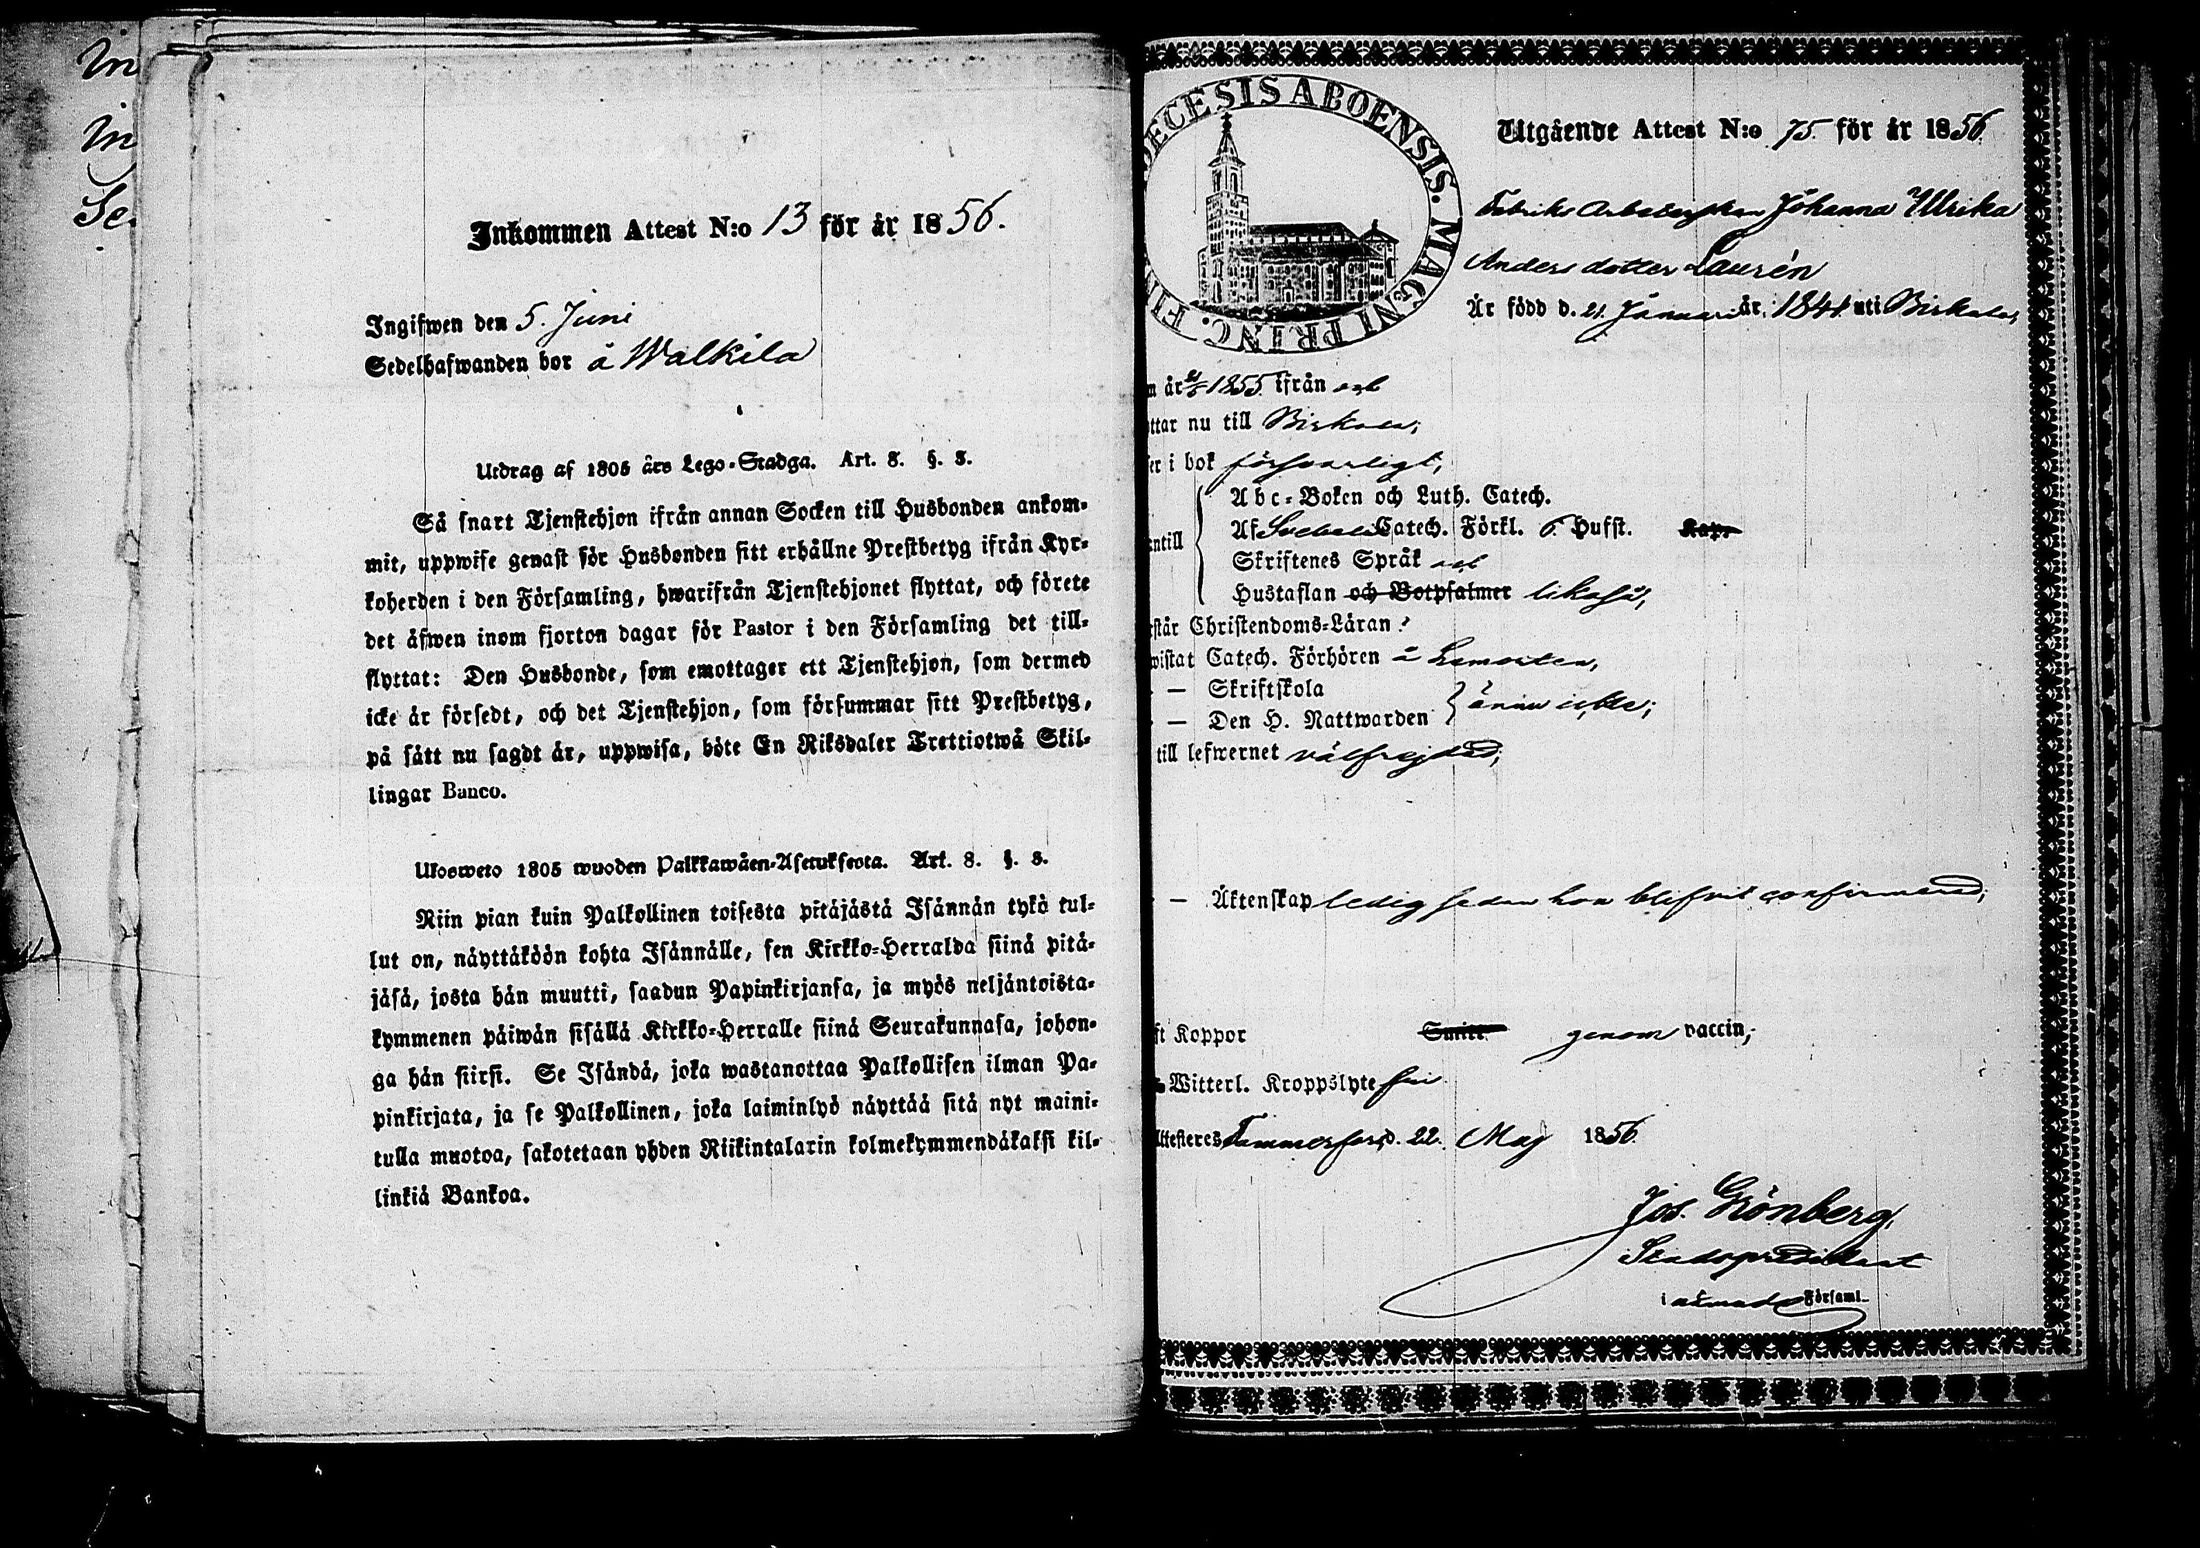 In
in
Se
Inkommen Attest N:o 13 för år 1856.
Ingifwen den 5. Juni
Sedelhafwanden bor å Walkila
Utdrag af 1805 års Lego-Stadga. Art. 8. §. 3.
Så snart Tjenstehjon ifrån annan Socken till Husbonden ankom-
mit, uppwise genast för Husbonden sitt erhållne Prestbetyg ifrån Kyr-
koherden i den Församling, hwarifrån Tjenstehjonet flyttat, och förete
det äfwen inom fjorton dagar för Pastor i den Församling det till-
flyttat: Den Husbonde, som emottager ett Tjenstehjon, som dermed
icke är försedt, och det Tjenstehjon, som försummar sitt Prestbetyg,
på sätt nu sagdt är, uppwisa, böte En Riksdaler Trettiotwå Skil-
lingar Banco.
Ulosweto 1805 wuoden Palkkawäen-Asetuksesta. Art. 8. §. 3.
Niin pian kuin Palkollinen toisesta pitäjästä Isännän tykö tul-
lut on, näyttäköön kohta Isännälle, sen Kirkko-Herralda siinä pitä-
jäsä, josta hän muutti, saadun Papinkirjansa, ja myös neljäntoista-
kymmenen päiwän sisällä Kirkko-Herralle siinä Seurakunnasa, johon-
ga hän siirsi. Se Isändä, joka wastanottaa Palkollisen ilman Pa-
pinkirjata, ja se Palkollinen, joka laiminlyö näyttää sitä nyt maini-
tulla muotoa, sakotetaan yhden Riikintalarin kolmekymmendäkaksi kil-
linkiä Bankoa.
DECESIS ABOENSIS. MAGNI PRINC. FI
Utgående Attest N:o 75. för år 1856.
Fabriks Arbeterskan Johanna Ulrika
Anders dotter Laurén
Är född d. 21. Januari år 1841. uti Birkala,
n år 1855. ifrån
ttar nu till Birkala;
er i bok försvarligt,
ntill
Abc-Boken och Luth. Catech.
Af Svebelii Catech. Förkl. 6. Hufst. Kap.
Skriftenes Språk
Hustaflan och Botpsalmer likaså,
står Christendoms-Läran
wistat Catech. Förhören å
— Skriftskola
— Den H. Nattwarden } ännu icke;
till lefwernet välfrejdad;
— Äktenskap ledig sedan hon blifvit confirmerad;
ft Koppor Smitt genom vaccin,
Witterl. Kroppslyte fri.
Attesteres Tammerfors, d. 22. Maj 1856.
Jos. Grönberg,
Stadspredikant
i nämnde Församl.